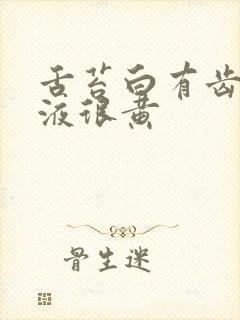 舌苔白有齿
液很黄
骨生迷